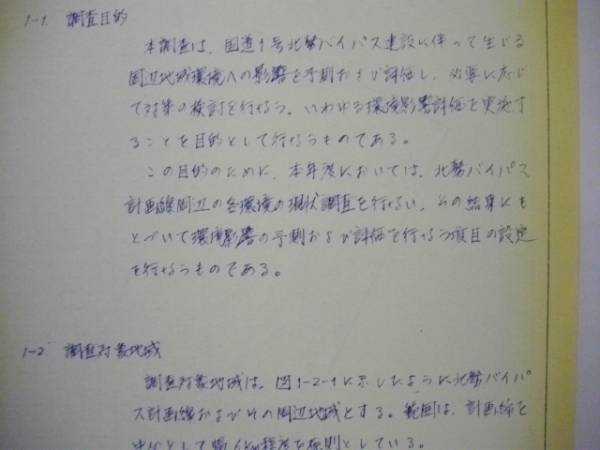 1-1 調査目的
本調査は、国道1号北勢バイパス建設に伴って生じる
周辺地域環境への影響を予測および評価し、必要に応じ
て対策の検討を行なう、いわゆる環境影響評価を実施す
ることを目的として行なうものである。
この目的のために、本年度においては、北勢バイパス
計画線周辺の各環境の現状調査を行ない、その結果にも
とづいて環境影響の予測および評価を行なう項目の設定
を行なうものである。
1-2 調査対象地域
調査対象地域は、図1-2-1に示したように北勢バイパ
ス計画線およびその周辺地域とする。範囲は、計画線を
中心として幅 程度を原則としている。